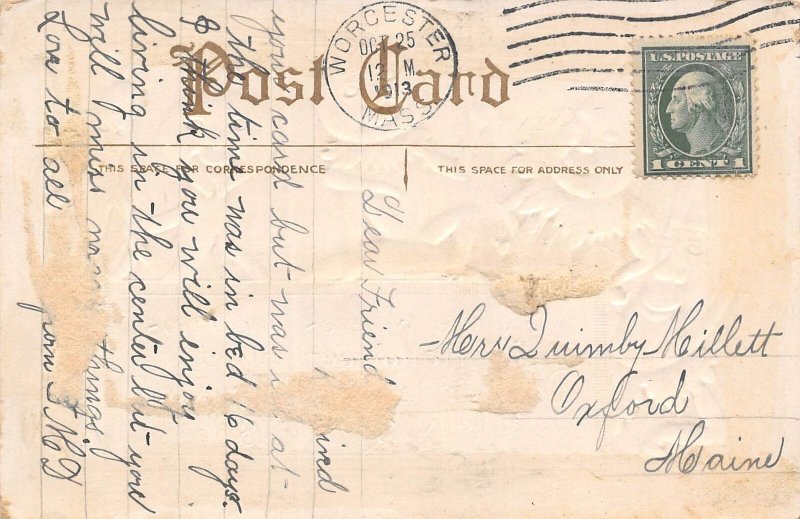 Post Card
WORCESTER
OCT 25
12 M
1913
MASS.
U.S. POSTAGE
1 CENT 1
THIS SPACE FOR CORRESPONDENCE
THIS SPACE FOR ADDRESS ONLY
Dear Friend
your card but was at
the time was in bed 16 days.
I think you will enjoy
living in the center but you
will miss things.
Love to all from
Mrs Quimby Millett
Oxford
Maine